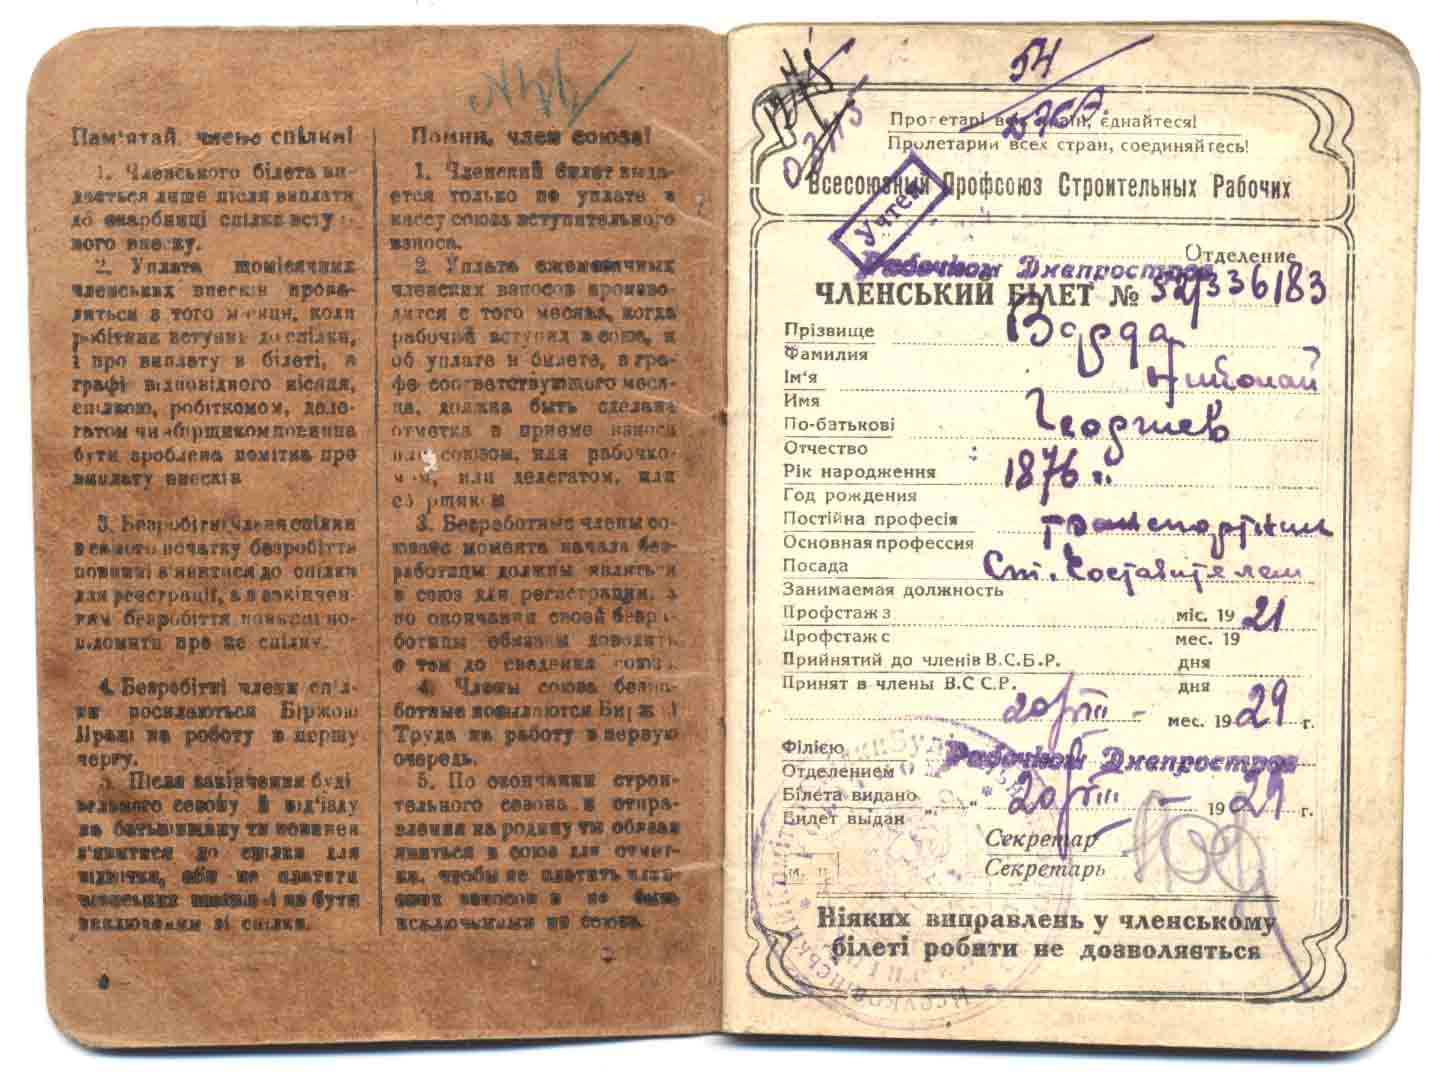 Пам'ятай, члене спілки!
1. Членського білета ви-
дається лише після виплати
до скарбниці спілки вступ
ного внеску.
2. Уплата щомісячних
членських внесків прова-
диться з того місяця, коли
робітник вступив до спілки,
і про виплату в білеті, в
графі відповідного місяця,
спілкою, робіткомом, деле-
гатом чи збірщиком повинна
бути зроблена помітка про
виплату внесків
3. Безробітні члени спілки
з самого початку безробіття
повинні з'явитися до спілки
для реєстрації, а в закінчен-
ням безробіття повинні по-
відомити про це спілку.
4. Безробітні члени спіл-
ки посилаються Біржою
Праці на роботу в першу
чергу.
5. Після закінчення буді
вельного сезону й від'їзду
на батьківщину ти повинен
з'явитися до спілки для
відмітки, аби не платити
членських внесків і не бути
виключеним зі спілки.
Помни, член союза!
1. Членский билет выда-
ется только по уплате в
кассу союза вступительного
взноса.
2. Уплата ежемесячных
членских взносов произво-
дится с того месяца, когда
рабочий вступил в союз, и
об уплате в билете, в гра-
фе соответствующего меся-
ца, должна быть сделана
отметка о приеме взноса
или союзом, или рабочко-
мом, или делегатом, или
сборщиком
3. Безработные члены со-
юза с момента начала без-
работицы должны являться
в союз для регистрации, а
по окончании своей безра-
ботицы обязаны доводить
о том до сведения союза.
4. Члены союза безра-
ботные посылаются Биржей
Труда на работу в первую
очередь.
5. По окончании строи-
тельного сезона и отпра-
вления на родину ты обязан
явиться в союз для отмет-
ки, чтобы не платить член-
ских взносов и не быть
исключенным из союза.
54
Пролетарі всіх країн, єднайтеся!
Пролетарии всех стран, соединяйтесь!
Всесоюзный Профсоюз Строительных Рабочих
Учтен
Отделение
Рабочком Днепростроя
ЧЛЕНСЬКИЙ БІЛЕТ № 336183
Прізвище
Фамилия Варда
Ім'я
Имя Николай
По-батькові
Отчество Георгиев
Рік народження
Год рождения 1876 г.
Постійна професія
Основная профессия транспортник
Посада
Занимаемая должность Ст. Составителем
Профстаж з міс. 1921
Профстаж с мес. 19
Прийнятий до членів В.С.Б.Р. дня
Принят в члены В.С С.Р. дня
20/VIII - мес. 1929 г.
Філією
Отделением Рабочком Днепростроя
Білета видано
Билет выдан „ 20/VIII — 1929 г.
Секретар
Секретарь
М. П.
Ніяких виправлень у членському
білеті робити не дозволяється